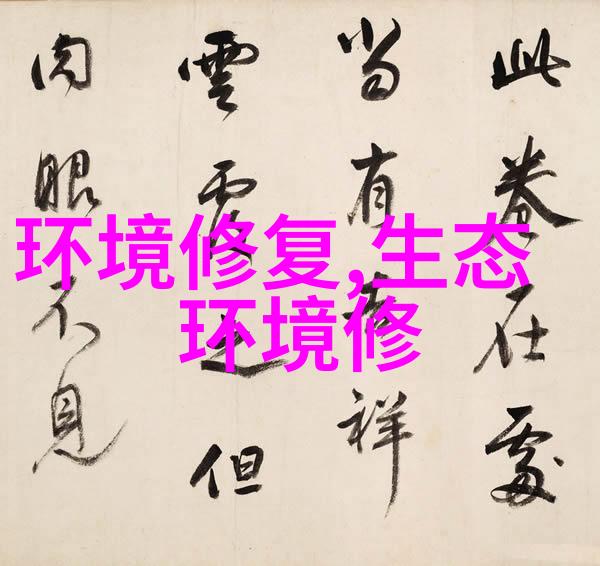 环境修复,生态
环境修
此卷在處
當有吉祥
雲覆之但
肉眼不見